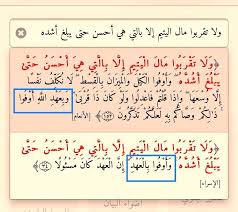 ولا تقربوا مال اليتيم إلا بالتي هي أحسن حتى يبلغ أشده
وَلَا تَقْرَبُوا مَالَ الْيَتِيمِ إِلَّا بِالَّتِي هِيَ أَحْسَنُ حَتَّىٰ
يَبْلُغَ أَشُدَّهُ وَأَوْفُوا الْكَيْلَ وَالْمِيزَانَ بِالْقِسْطِ لَا نُكَلِّفُ نَفْسًا
إِلَّا وُسْعَهَا وَإِذَا قُلْتُمْ فَاعْدِلُوا وَلَوْ كَانَ ذَا قُرْبَىٰ وَبِعَهْدِ اللَّهِ أَوْفُوا
ذَٰلِكُمْ وَصَّاكُمْ بِهِ لَعَلَّكُمْ تَذَكَّرُونَ ﴿١٥٢﴾ [الأنعام]
وَلَا تَقْرَبُوا مَالَ الْيَتِيمِ إِلَّا بِالَّتِي هِيَ أَحْسَنُ حَتَّىٰ
يَبْلُغَ أَشُدَّهُ وَأَوْفُوا بِالْعَهْدِ إِنَّ الْعَهْدَ كَانَ مَسْئُولًا ﴿٣٤﴾
[الإسراء]
أضواء البيان